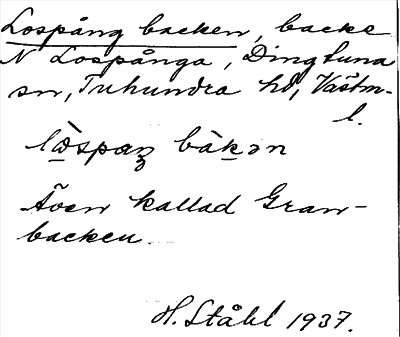 Lospång backen, backe
N Lospånga, Dingtuna
sn, Tuhundra hd, Västm-
l.
bàkən
Även kallad Gran-
backen.
H. Ståhl 1937.